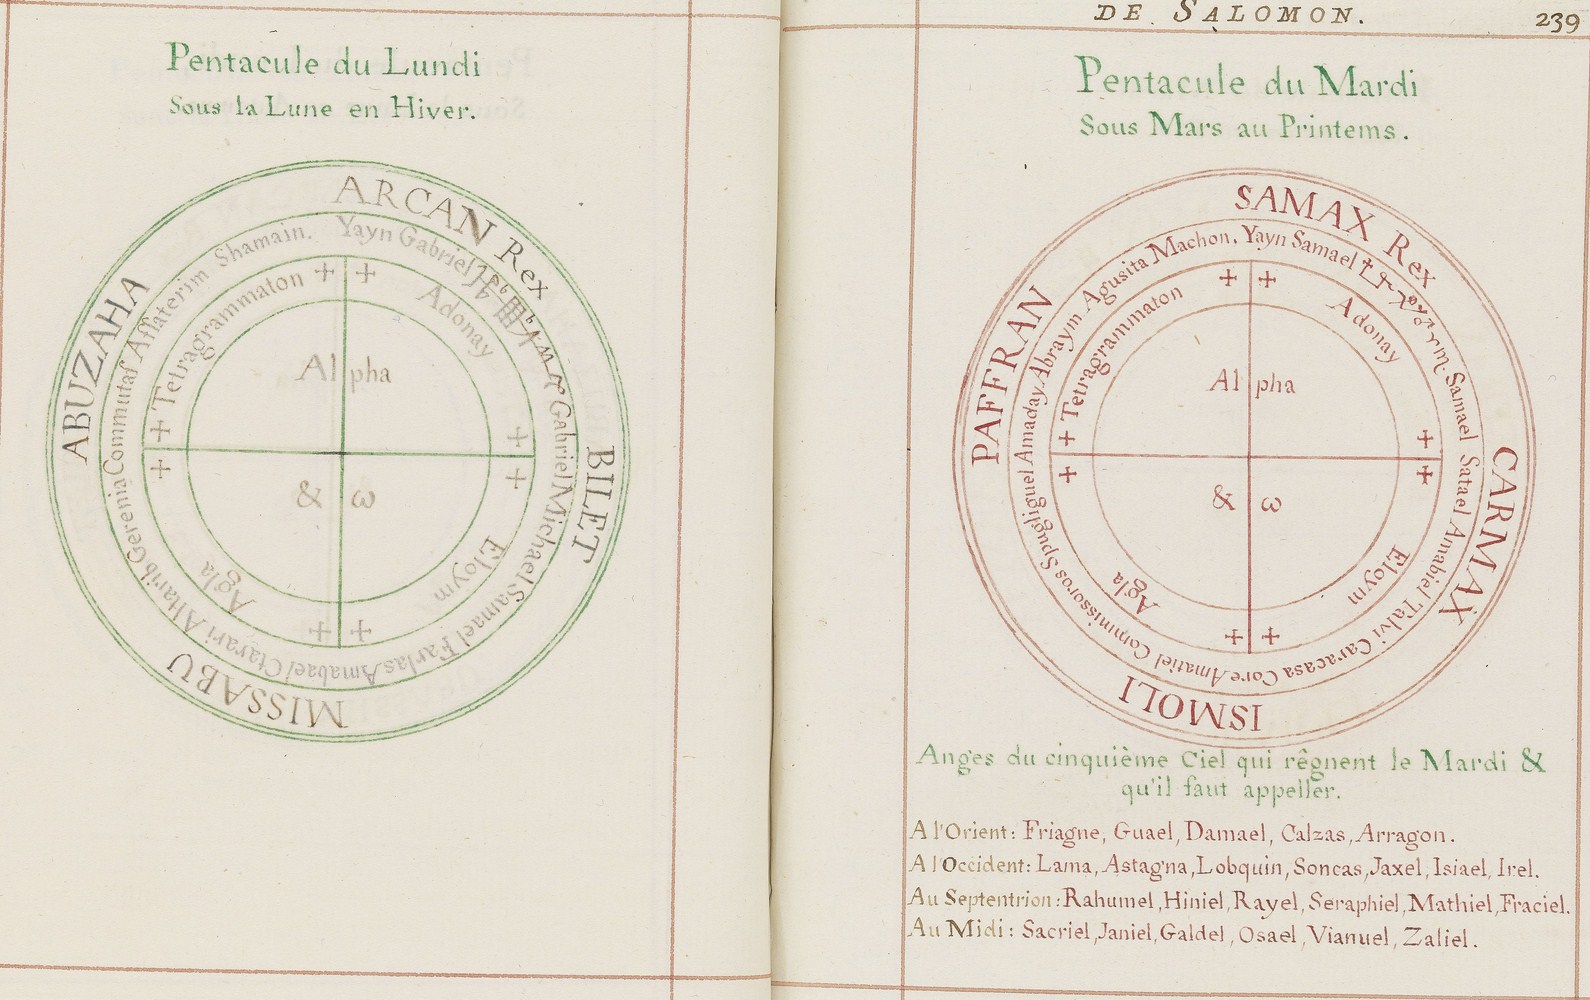 Pentacule du Lundi
Sous la Lune en Hiver.
ARCAN Rex
BILET
MISSABU
ABUZAHA
Yayn Gabriel
Gabriel Michael Samael Farlas Amabael Ctarari Altarib Gerenia Commutaf Affaterim Shamain.
+ Adonay +
+ Eloym +
+ Agla +
+ Tetragrammaton +
Al pha
& ω
DE SALOMON.
239
Pentacule du Mardi
Sous Mars au Printems.
SAMAX Rex
CARMAX
ISMOLI
PAFFRAN
Yayn Samael
Samael Satael Amabiel Talvi Caracasa Core Amatiel Commissoros Spugliguel Amaday Abraym Agusita Machon.
+ Adonay +
+ Eloym +
+ Agla +
+ Tetragrammaton +
Al pha
& ω
Anges du cinquième Ciel qui rêgnent le Mardi &
qu'il faut appeller.
A l'Orient: Friagne, Guael, Damael, Calzas, Arragon.
A l'Occident: Lama, Astagna, Lobquin, Soncas, Jaxel, Isiael, Irel.
Au Septentrion: Rahumel, Hiniel, Rayel, Seraphiel, Mathiel, Fraciel.
Au Midi: Sacriel, Janiel, Galdel, Osael, Vianuel, Zaliel.